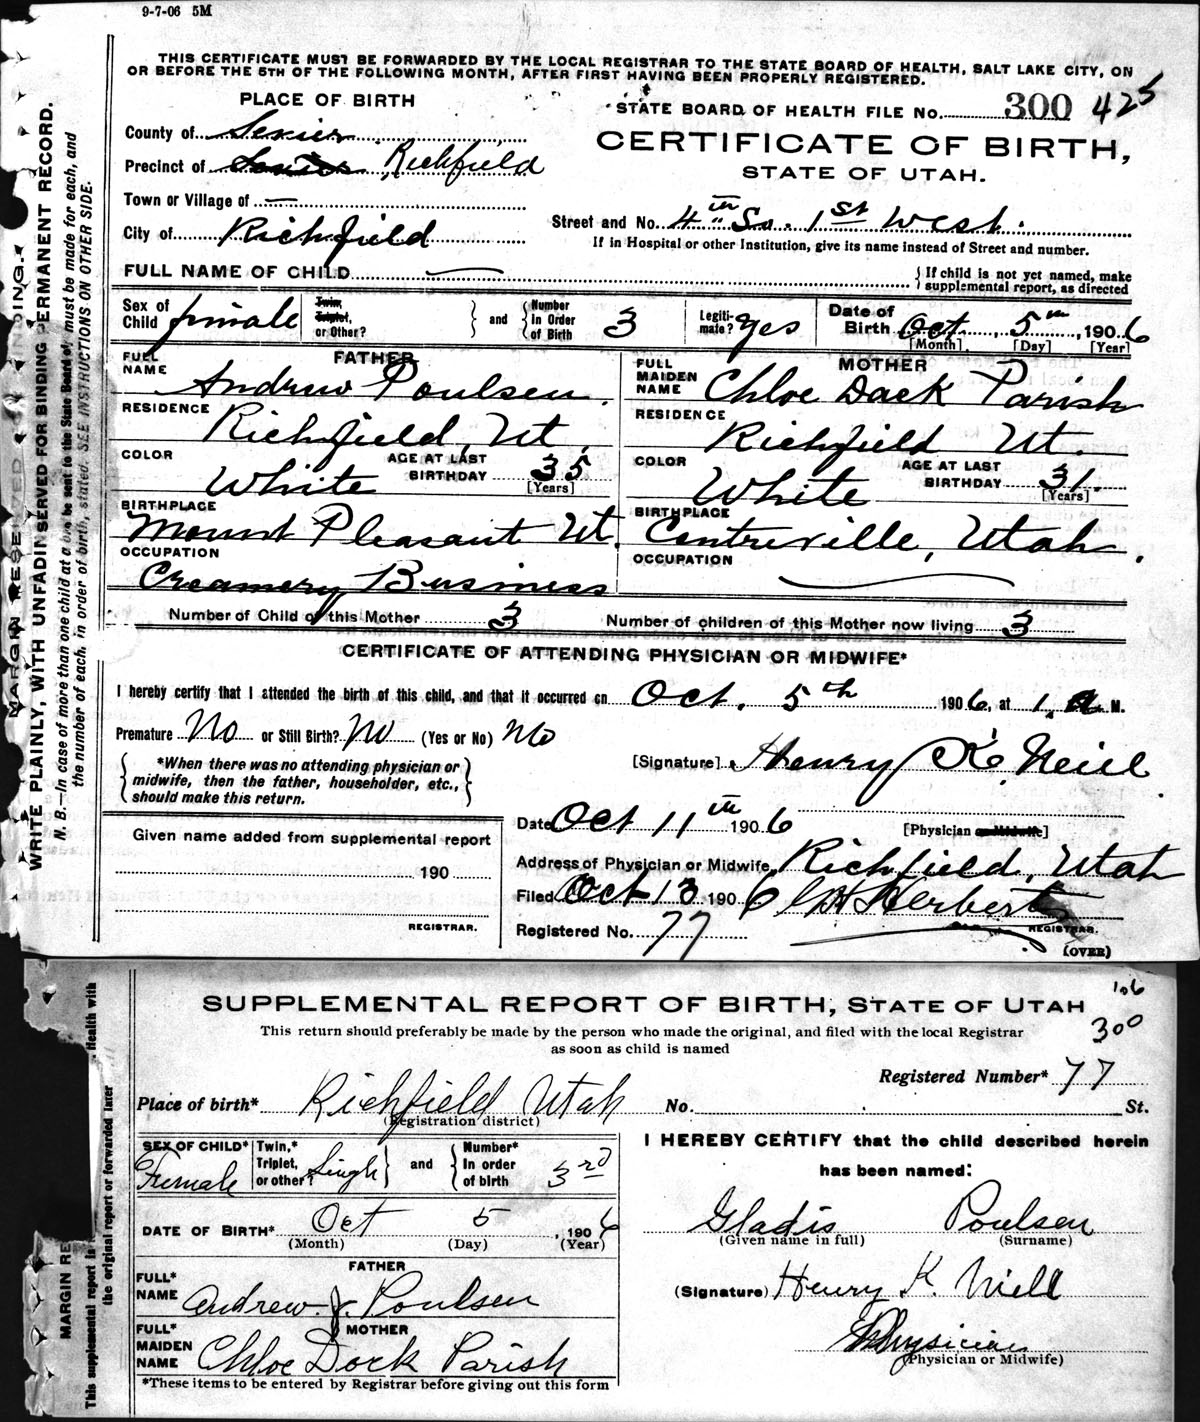 9-7-06 5M
THIS CERTIFICATE MUST BE FORWARDED BY THE LOCAL REGISTRAR TO THE STATE BOARD OF HEALTH, SALT LAKE CITY, ON
OR BEFORE THE 5TH OF THE FOLLOWING MONTH, AFTER FIRST HAVING BEEN PROPERLY REGISTERED.
PLACE OF BIRTH
STATE BOARD OF HEALTH FILE No. 300 425
County of Sevier
CERTIFICATE OF BIRTH,
Precinct of Sevier Richfield
STATE OF UTAH.
Town or Village of —
Street and No. 4th So. 1st West.
City of Richfield
If in Hospital or other Institution, give its name instead of Street and number.
FULL NAME OF CHILD —
If child is not yet named, make
supplemental report, as directed
Sex of Child female
Twin, Triplet, or Other?
and
Number In Order of Birth 3
Legiti-mate? yes
Date of Birth Oct. 5th, 1906
[Month] [Day] [Year]
FATHER
FULL NAME Andrew Poulsen.
RESIDENCE
Richfield, Ut.
COLOR White
AGE AT LAST BIRTHDAY 35
[Years]
BIRTHPLACE
Mount Pleasant Ut.
OCCUPATION
Creamery Business
MOTHER
FULL MAIDEN NAME Chloe Dack Parish
RESIDENCE
Richfield Ut.
COLOR White
AGE AT LAST BIRTHDAY 31.
[Years]
BIRTHPLACE
Centreville, Utah.
OCCUPATION —
Number of Child of this Mother 3
Number of children of this Mother now living 3
CERTIFICATE OF ATTENDING PHYSICIAN OR MIDWIFE*
I hereby certify that I attended the birth of this child, and that it occurred on Oct. 5th 1906, at 1. A M.
Premature No or Still Birth? No (Yes or No) No
*When there was no attending physician or
midwife, then the father, householder, etc.,
should make this return.
[Signature] Henry K. Neill
Date Oct 11th 1906
[Physician or Midwife]
Given name added from supplemental report
190
REGISTRAR.
Address of Physician or Midwife, Richfield, Utah
Filed Oct 13 1906 CH Herbert
REGISTRAR.
Registered No. 77
(OVER)
MARGIN RESERVED FOR BINDING.
WRITE PLAINLY, WITH UNFADING
SERVED FOR BINDING PERMANENT RECORD.
N. B.—In case of more than one child at a
be sent to the State Board of must be made for each, and
the number of each, in order of birth, stated. SEE INSTRUCTIONS ON OTHER SIDE.
SUPPLEMENTAL REPORT OF BIRTH, STATE OF UTAH
106
300
This return should preferably be made by the person who made the original, and filed with the local Registrar
as soon as child is named
Registered Number* 77
Place of birth* Richfield Utah No. St.
(Registration district)
SEX OF CHILD* Female
Twin,* Triplet, or other? Single
and
Number* In order of birth 3rd
DATE OF BIRTH* Oct 5, 1906
(Month) (Day) (Year)
FATHER
FULL* NAME Andrew J. Poulsen
MOTHER
FULL* MAIDEN NAME Chloe Dock Parish
*These items to be entered by Registrar before giving out this form
I HEREBY CERTIFY that the child described herein
has been named:
Gladis Poulsen
(Given name in full) (Surname)
(Signature) Henry K. Nill
Physician
(Physician or Midwife)
MARGIN RE
This supplemental report is
Health with
the original report or forwarded later